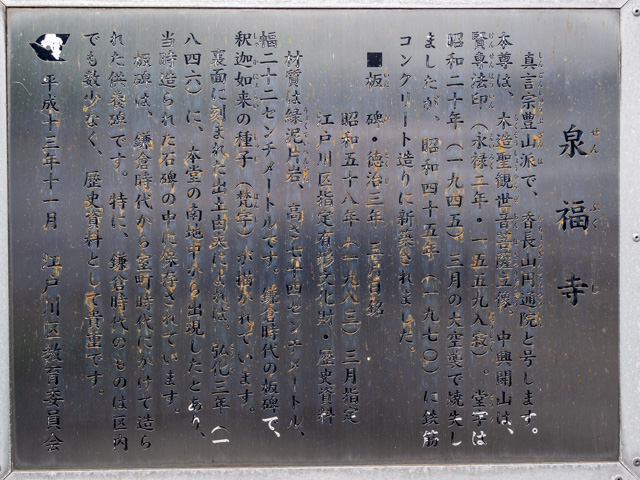 泉福寺
せんふくじ
真言宗豊山派で、香長山円通院と号します。
本尊は、木造聖観世音菩薩立像、中興開山は、
賢専法印（永禄二年・一五五九入寂）。堂宇は
昭和二十年（一九四五）三月の大空襲で焼失し
ましたが、昭和四十五年（一九七〇）に鉄筋
コンクリート造りに新築されました。
■板碑・徳治三年二月日銘
昭和五十八年（一九八三）三月指定
江戸川区指定有形文化財・歴史資料
材質は緑泥片岩、高さ七十四センチメートル、
幅二十二センチメートルです。鎌倉時代の板碑で、
釈迦如来の種子（梵字）が描かれています。
裏面に刻まれた出土由来によれば、弘化三年（一
八四六）に、本堂の南地中から出現したとあり、
当時造られた石碑の中に保存されています。
板碑は、鎌倉時代から室町時代にかけて造ら
れた供養碑です。特に、鎌倉時代のものは区内
でも数少なく、歴史資料として貴重です。
平成十三年十一月　江戸川区教育委員会